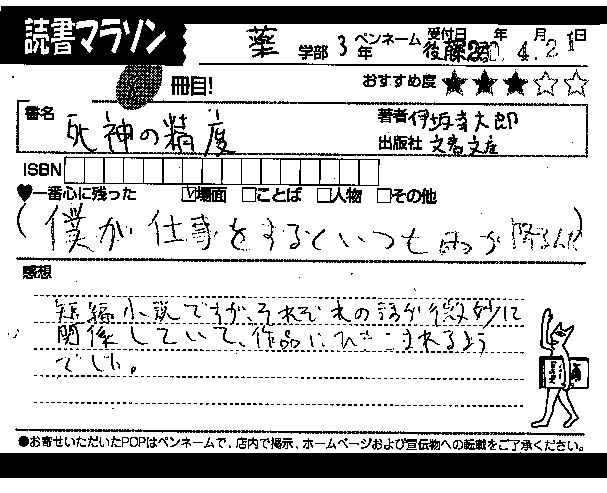 読書マラソン
薬 学部 3 年 ペンネーム 後藤 受付日 年 4月 2 日
冊目!
おすすめ度 ★★★☆☆
書名 死神の精度
著者 伊坂幸太郎
出版社 文春文庫
ISBN
♥一番心に残った ☑場面 □ことば □人物 □その他
(僕が仕事をするといつも雨が降るんだ)
感想
短編小説ですが、それぞれの話が微妙に
関係していて、作品にひきこまれるよう
でした。
●お寄せいただいたPOPはペンネームで、店内で掲示、ホームページおよび宣伝物への転載をご了承ください。